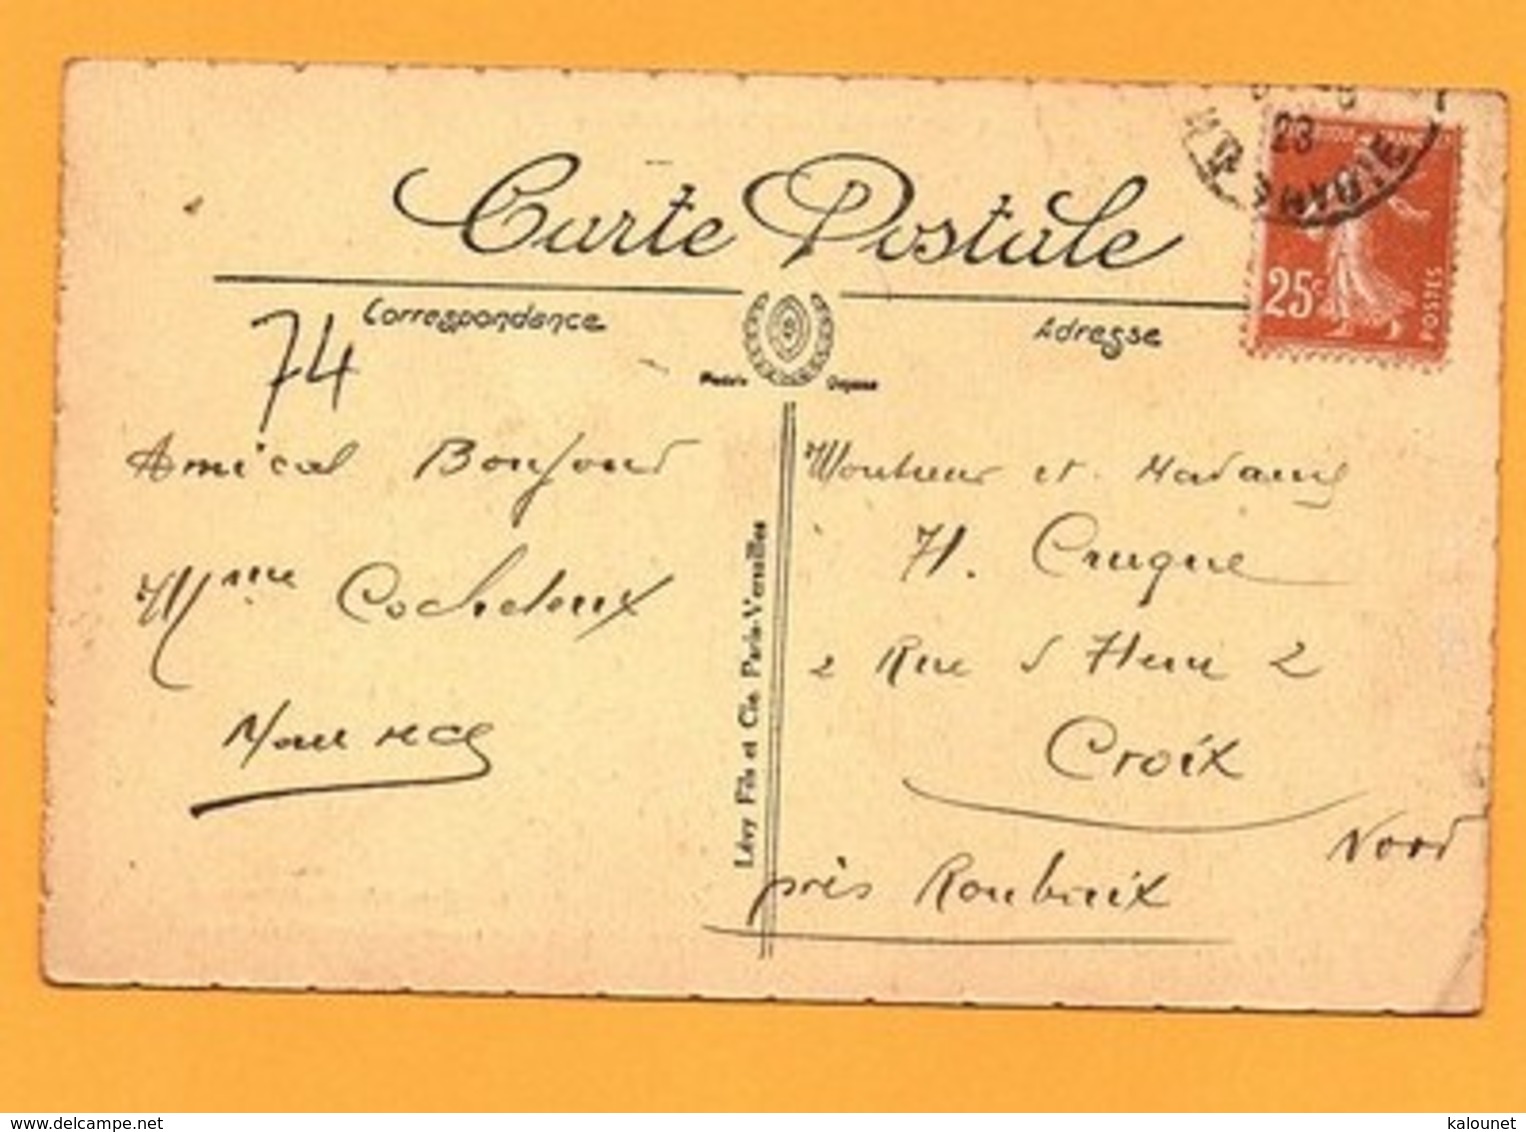 Carte Postale
Correspondance
Adresse
25c
POSTES
28
74
Amical Bonjour
Mme
Maurice
Monsieur et Madame
H. Cruque
2 Rue d Henri 2
Croix
Nord
près Roubaix
Lévy Fils et Cie. Paris-Versailles
www.delcampe.net
kalounet